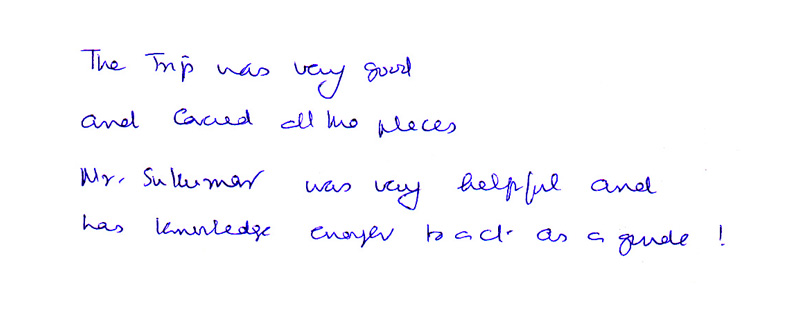 The Trip was very good
and Covered all the places
Mr. Sukumar was very helpful and
has knowledge enough to act as a guide !